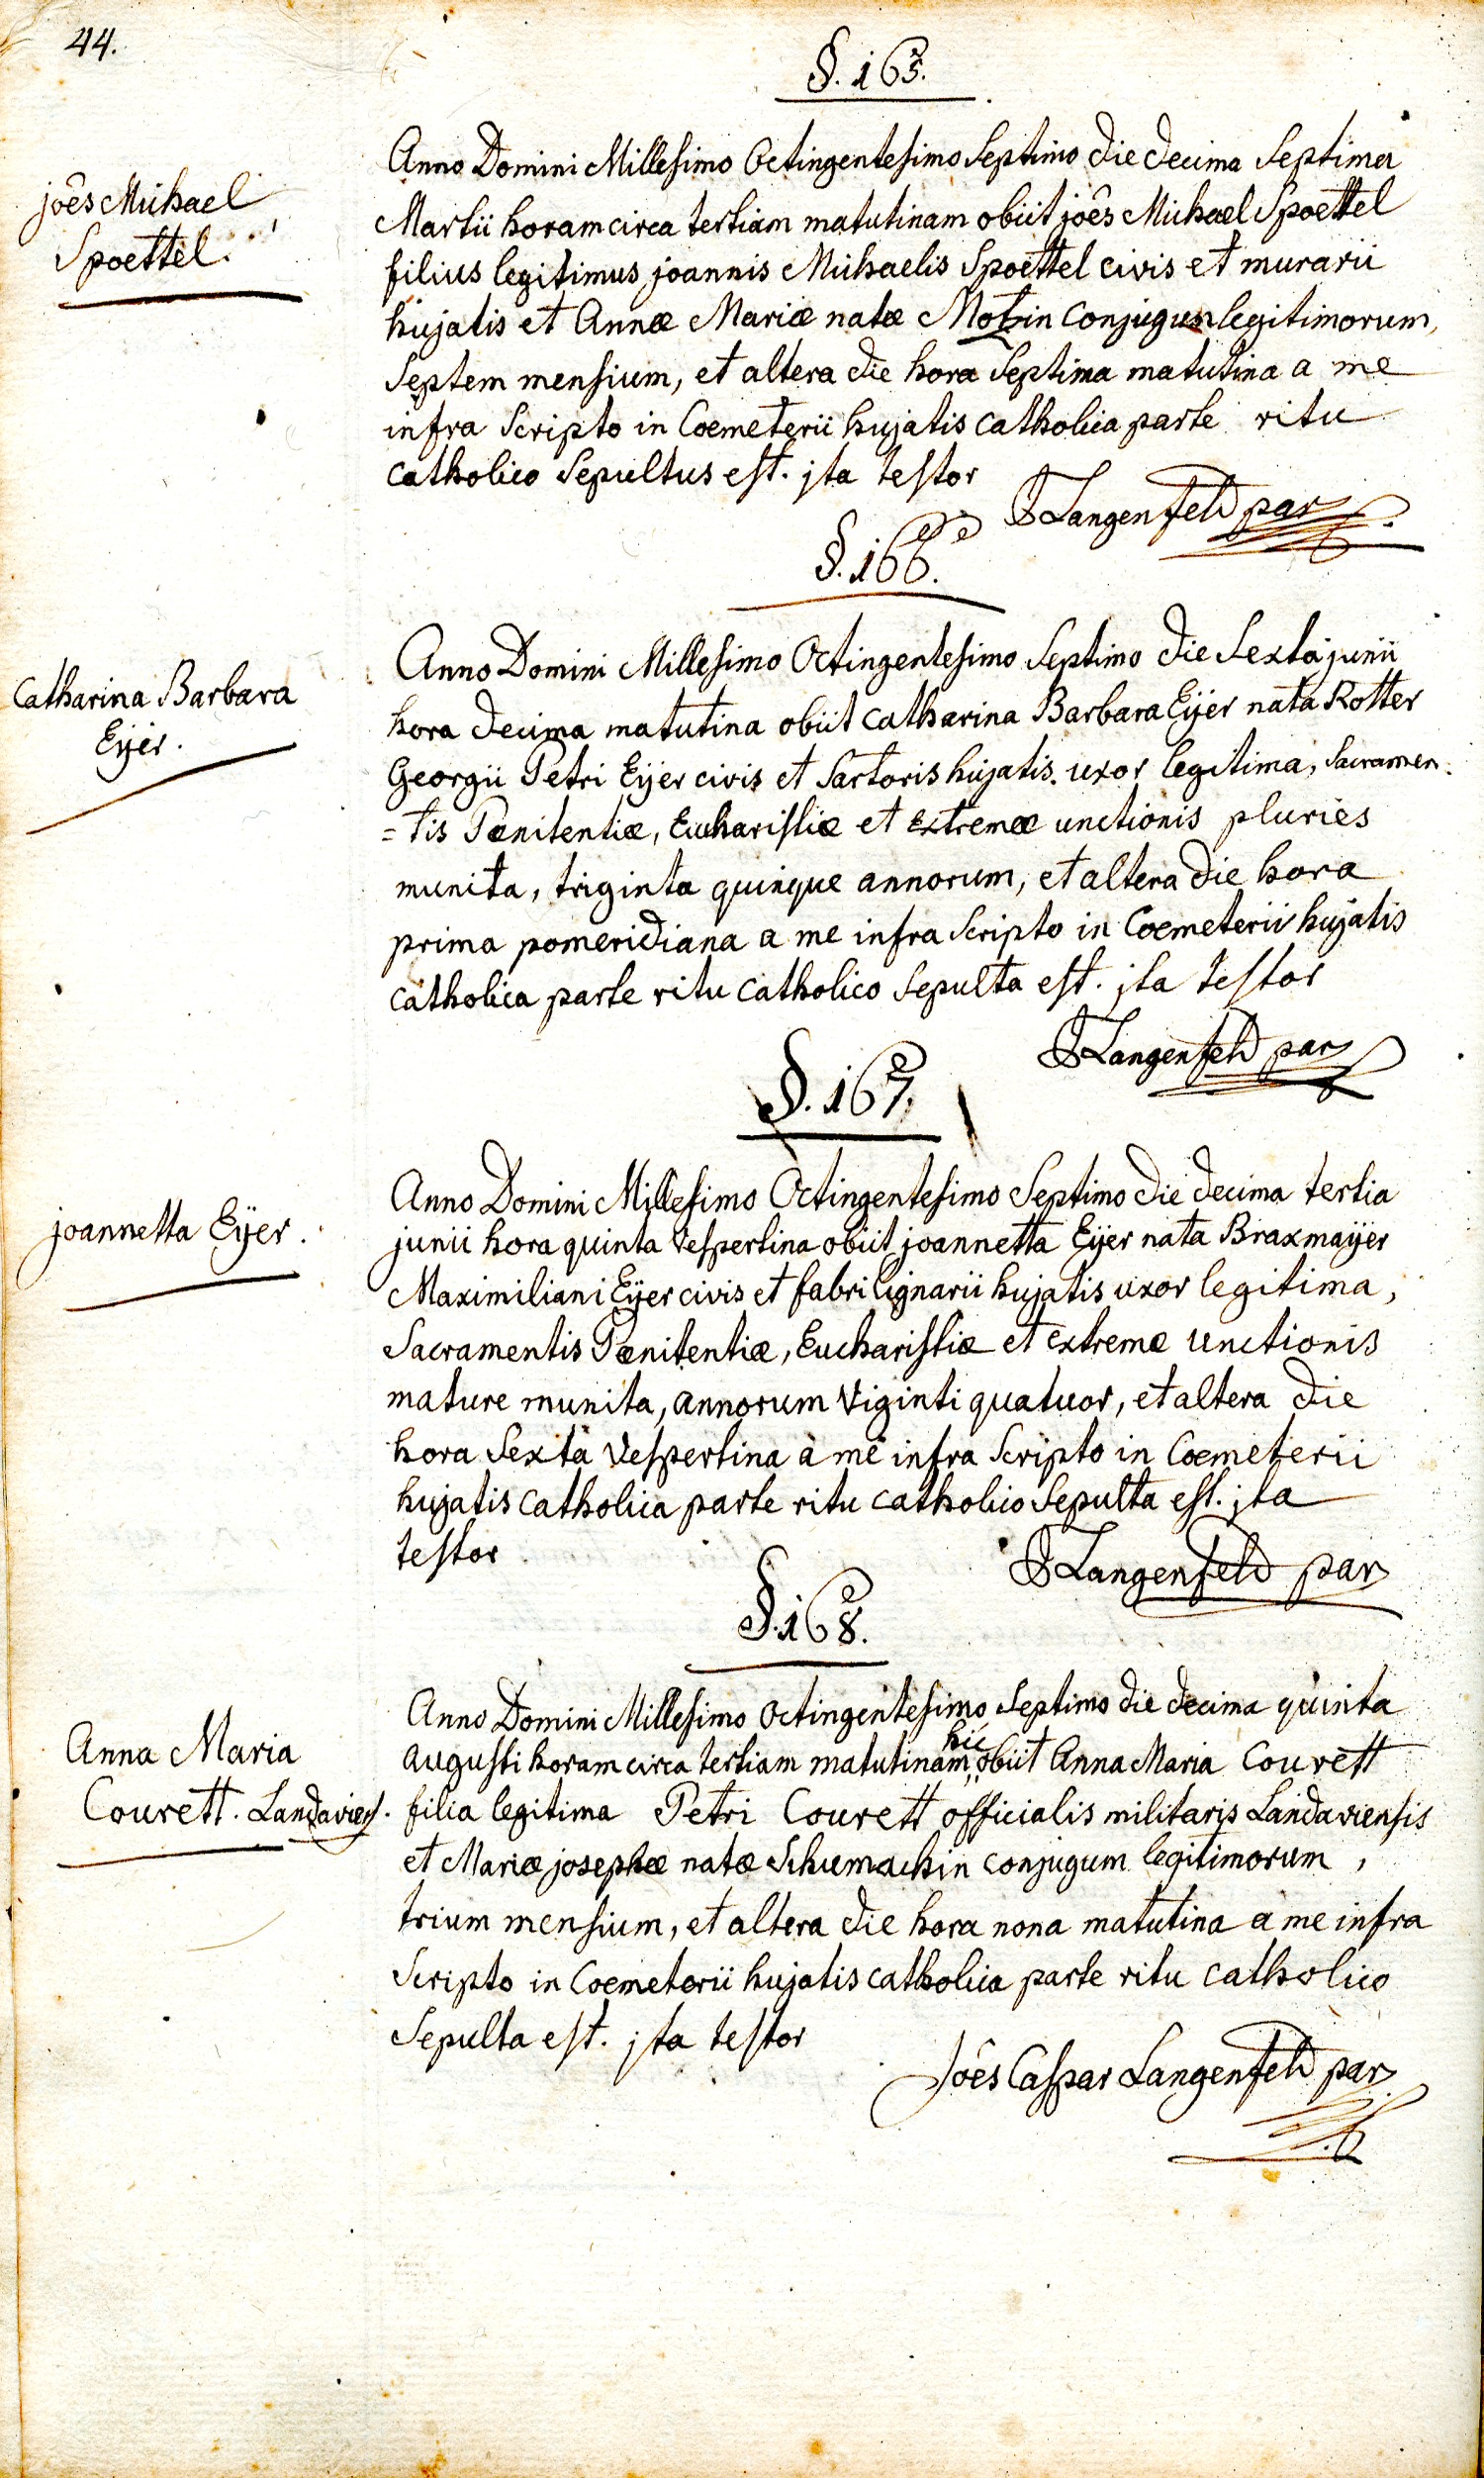 44.
§. 165.
joês Michael
Spoettel.
Anno Domini Millesimo Octingentesimo Septimo die decima Septima
Martii horam circa tertiam matutinam obiit joês Michael Spoettel
filius legitimus joannis Michaelis Spoettel civis et murarii
hujatis et Annæ Mariæ natæ Motzin Conjugum legitimorum,
Septem mensium, et altera die hora Septima matutina a me
infra Scripto in Coemeterii hujatis catholica parte ritu
catholico Sepultus est. jta testor
J Langenfeld par
§. 166.
Catharina Barbara
Eÿer.
Anno Domini Millesimo Octingentesimo Septimo die Sexta junii
hora decima matutina obiit catharina Barbara Eÿer nata Rotter
Georgii Petri Eÿer civis et Sartoris hujatis uxor legitima, Sacramen=
=tis Pænitentiæ, Eucharistiæ et Extremæ unctionis pluries
munita, triginta quinque annorum, et altera die hora
prima pomeridiana a me infra Scripto in Coemeterii hujatis
catholica parte ritu catholico Sepulta est. jta testor
J Langenfeld par
§. 167.
joannetta Eÿer.
Anno Domini Millesimo Octingentesimo Septimo die decima tertia
junii hora quinta Vespertina obiit joannetta Eÿer nata Braxmaÿer
Maximiliani Eÿer civis et fabri lignarii hujatis uxor legitima,
Sacramentis Pænitentiæ, Eucharistiæ et Extremæ unctionis
mature munita, annorum Viginti quatuor, et altera die
hora Sexta Vespertina a me infra Scripto in Coemeterii
hujatis catholica parte ritu catholico Sepulta est. jta
testor
J Langenfeld par
§. 168.
Anna Maria
Courett. Landaviens.
Anno Domini Millesimo Octingentesimo Septimo die decima quinta
augusti horam circa tertiam matutinam hic obiit Anna Maria Courett
filia legitima Petri Courett officialis militaris Landaviensis
et Mariæ josephæ natæ Schumachin conjugum legitimorum,
trium mensium, et altera die hora nona matutina a me infra
Scripto in Coemeterii hujatis catholica parte ritu catholico
Sepulta est. jta testor
Joês Caspar Langenfeld par